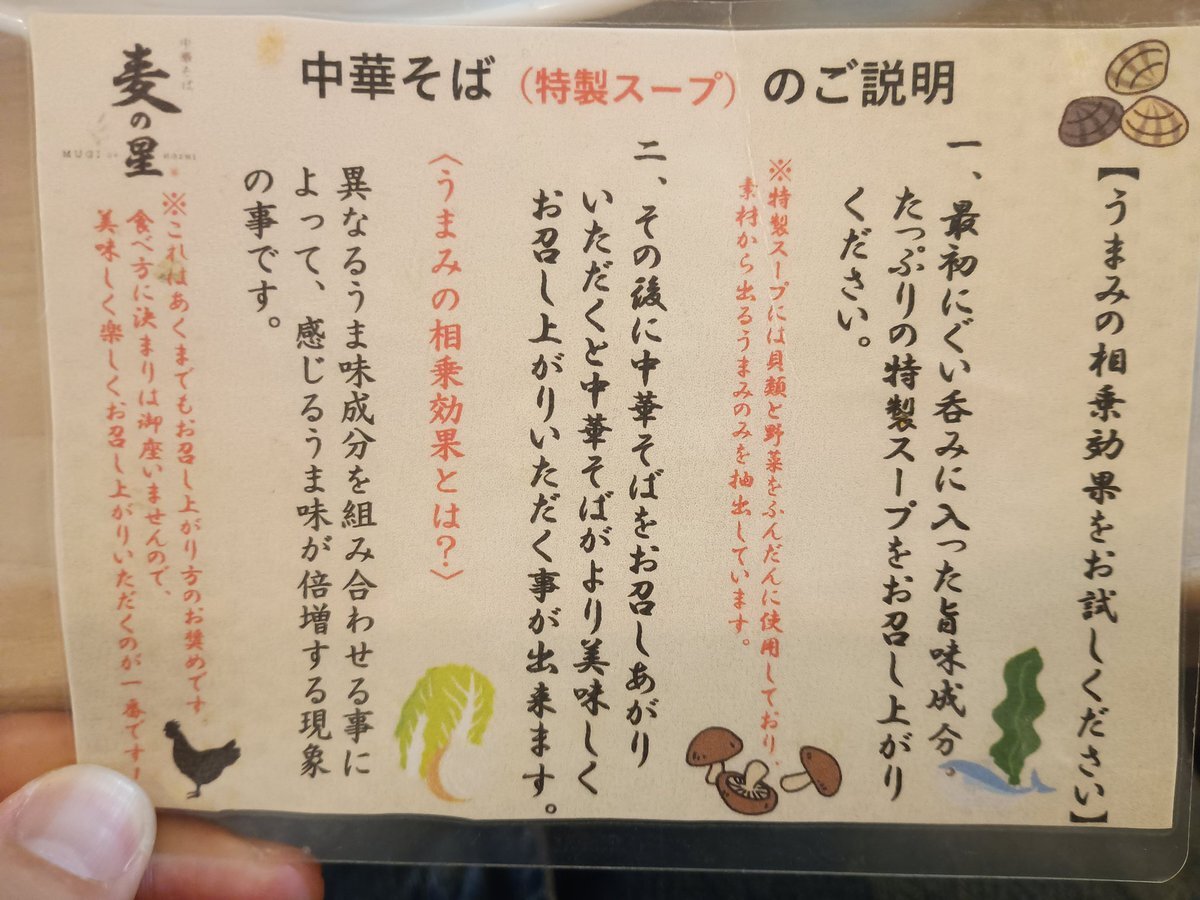 中華そば（特製スープ）のご説明
【うまみの相乗効果をお試しください】
一、最初にぐい呑みに入った旨味成分。
たっぷりの特製スープをお召し上がり
ください。
※特製スープには貝類と野菜をふんだんに使用しており、
素材から出るうまみのみを抽出しています。
二、その後に中華そばをお召しあがり
いただくと中華そばがより美味しく
お召し上がりいただく事が出来ます。
〈うまみの相乗効果とは？〉
異なるうま味成分を組み合わせる事に
よって、感じるうま味が倍増する現象
の事です。
中華そば
麦の星
MUGI no HOSHI
※これはあくまでもお召し上がり方のお奨めです
食べ方に決まりは御座いませんので、
美味しく楽しくお召し上がりいただくのが一番です！